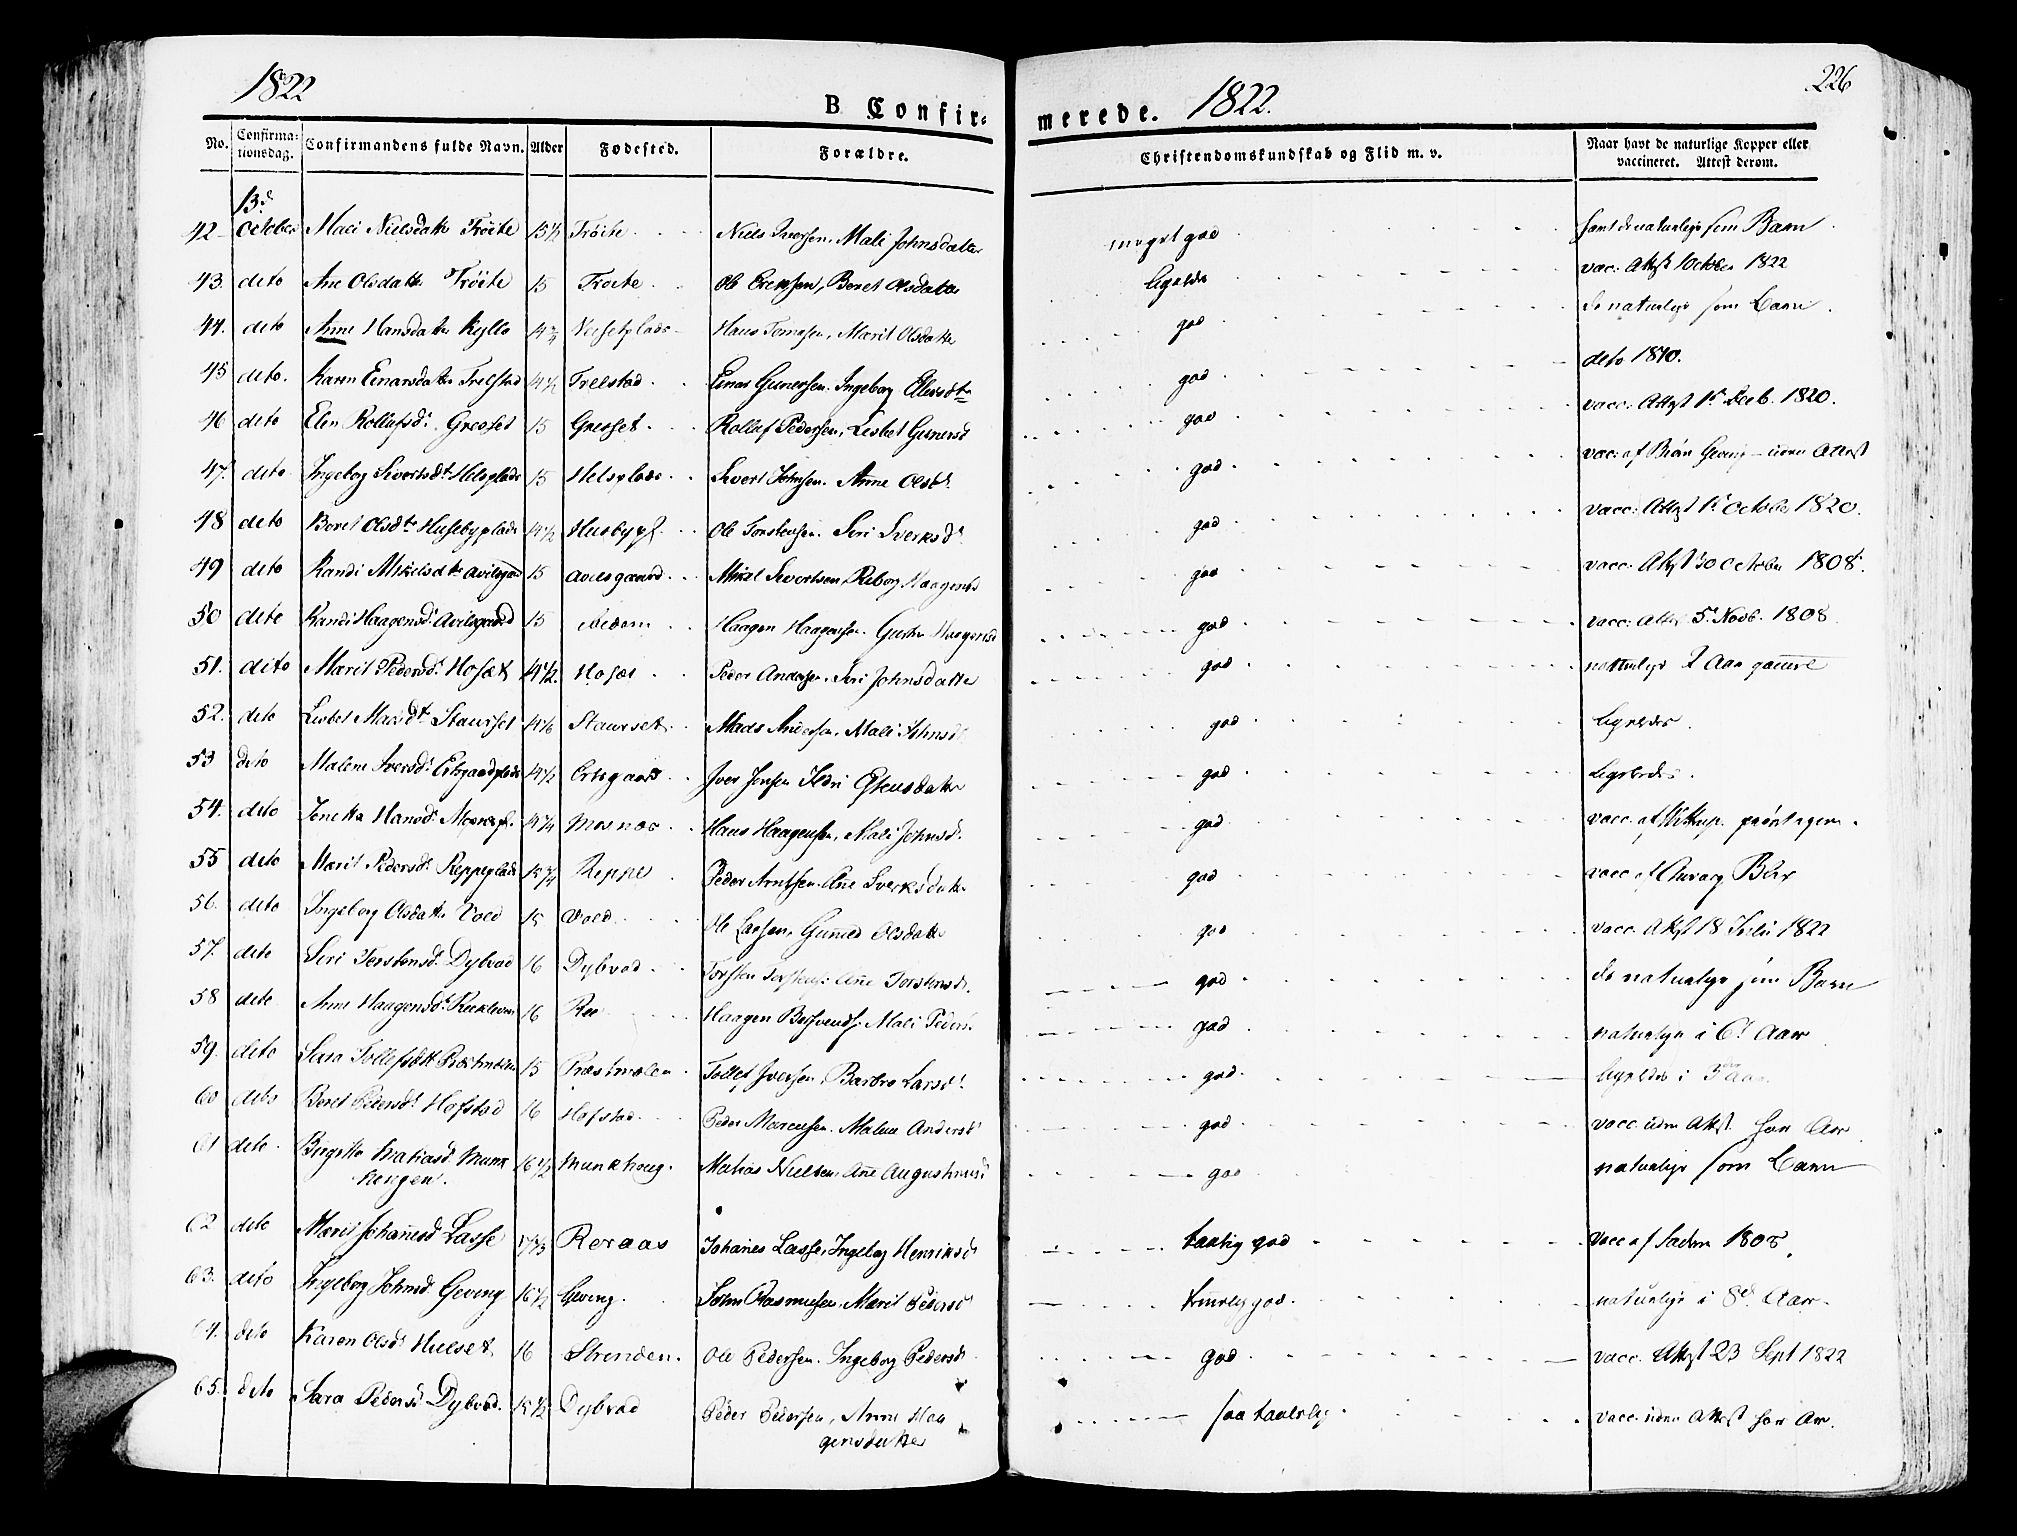 1822
B Confir-
merede. 1822.
226
No. Confirma-tionsdag. Confirmandens fulde Navn. Alder Fødested. Forældre. Christendomskundskab og Flid m. v. Naar havt de naturlige Kopper eller vaccineret. Attest derom.
13d
42 October Mali Nielsdatt Tröite 15½ Tröite Niels Iversen, Mali Johnsdatter meget god havt de naturlige som Barn
43. deto Ane Olsdatt Tröite 15 Troite Ole Ericksen, Beret Olsdatter ligeledes vac: Attest October 1822
44. deto Anne Hansdatter Kyllo 14¾ Hans Tomasen, Marit Olsdatter god de naturlige som Barn
45 deto. Karen Einarsdatter Trelstad 14½ Trelstad Einar Gunersen. Ingeborg Ellevsdtr god deto 1810.
46 deto Elen Rollafsd. Gresset 15 Gresset Rollaf Pedersen, Lisbet Gunersd god vacc: Attest 1ste Deeb. 1820.
47. deto Ingeborg Sivertsdt Helsplads 15 Helsplads Sivert Johnsen. Anne Olsd. god vac: af Biörn Geving uden Attest
48 deto Beret Olsdtr Husebyplads 14½ Husbypl. Ole Torstensen. Siri Sverksd. god vacc: Attest 1 October 1820.
49 deto Randi Mikelsdtr Avelsgaard 15 Avelsgaard Mikel Sivertsen, Reborg Haagensd god vacc: Attest 30 October 1808.
50 deto Randi Haagensd. Avelsgaard 15 ibidem Haagen Haagensen. Guru Haagensd god vacc: Attest 5. Novb. 1808.
51. dito Marit Pedersd. Hoset 14½. Hoset Peder Andersen, Siri Johnsdatter god naturlige 2 Aar gamle
52. deto Lisbet Madsdt Staurset 14 Staurset Mads Andersen, Mali Johnsd god ligeledes.
53 deto Malene Iversd. Ertsgaardplads 14½ Ertsgaard Iver Jensen Ildri Estensdatter god ligeledes.
54. deto Jenetta Hansd. Mosnespl. 14¼ Mosnes Hans Haagensen, Mali Johnsd. god vacc. af
55 deto Marit Pedersd. Reppeplads 15¾ Reppe Peder Arntsen. Ane Sverksdatter god vacc af
56. deto Ingeborg Olsdatter Voed 15 Voed Ole Larsen, Guned Olsdatter god vacc. Attest 18 Julii 1822
57. deto Siri Torstensd. Dybvad 16 Dybvad Torsten Torstens: Ane Torstensd. god de naturlige som Barn
58 deto Anne Haagensd. 16 Ree Haagen Mali Peders god naturlige i 6t Aar
59. deto Sara Tollefsdtt 15 Præstmoelen Tollef Iversen, Barbro Larsd. god ligeledes i 3die Aar
60 deto Beret Pedersd. Hofstad 16 Hofstad Peder Marcusen. Malene Andersd god vacc. uden Attest for Aar
61 deto Birgitte Matiasd. Munkhougen. 16½ Munkhoug. Matias Nielsen. Ane Augustinusd god naturlige som Barn
62. deto Marit Johannesd. Lasse 17½ Reraas Johanes Lasse, Ingeborg Henriksd taalig god vacc af Sadem 1808.
63. deto Ingeborg Johnsd. Geving 16½ Geving. John Rasmusen. Marit Pedersd temelig god. naturlige i 8de Aar.
64. deto Karen Olsd. Hulset 16 Strenden. Ole Pedersen. Ingeborg Pedersd god vacc. Attest 23 Sept 1822
65. deto Sara Pedersd. Dybvad. 15½ Dybvad Peder Pedersen, Anne Haagensdatter saa taalelig vacc. uden Attest for Aar.